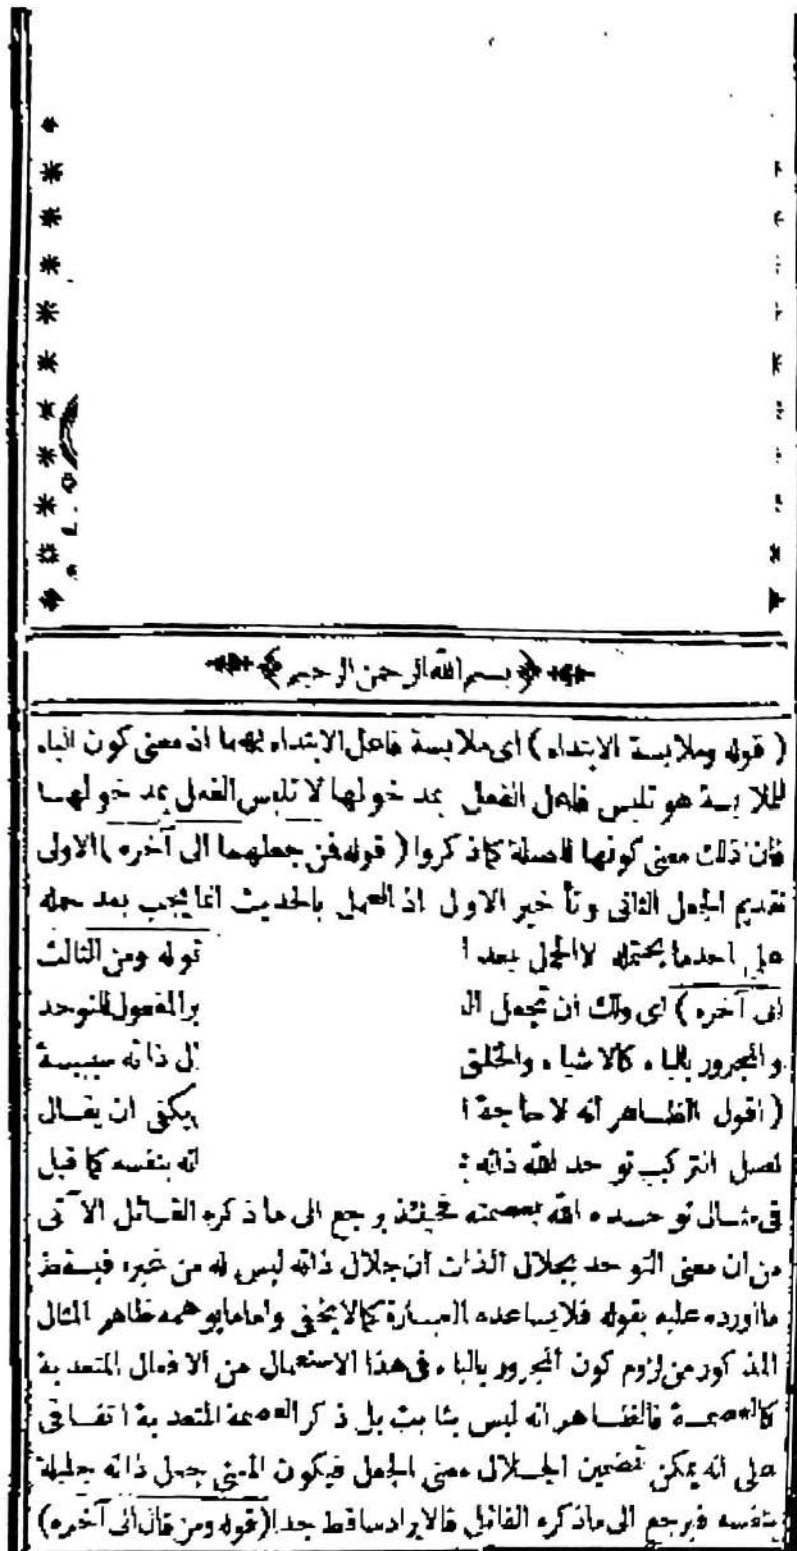 ﴿ بسم الله الرحمن الرحيم ﴾
( قوله وملابسة الابتداء ) اى ملابسة فاعل الابتداء بهما اذ معنى كون الباء
للملابسة هو تلبس فاعل الفعل بمدخولها لا تلبس الفعل بمدخولها
فان ذلك معنى كونها للصلة كما ذكروا ( قوله فمن جعلهما الى آخره ) الاولى
تقديم الجعل الثانى وتأخير الاول اذ العمل بالحديث انما يجب بعد حمله
على احدما يحتمله لا الحمل بعد ا قوله ومن الثالث
الى آخره ) اى ولك ان تجعل ال بر المفعول للتوحد
والمجرور بالباء كالاشياء والخلق ل ذاته سببية
( اقول الظاهر انه لا حاجة ا يكفى ان يقال
اصل التركيب توحد لله ذاته انه بنفسه كما قيل
فى مثال توحده الله بعصمته فحينئذ يرجع الى ما ذكره القائل الآتى
من ان معنى التوحد بجلال الذات ان جلال ذاته ليس له من غيره فيسقط
ما اورده عليه بقوله فلا يساعده العبارة كما لا يخفى واما ما يوهمه ظاهر المثال
المذكور من لزوم كون المجرور بالباء فى هذا الاستعمال من الافعال المتعدية
كالعصمة فالظاهر انه ليس بثابت بل ذكر العصمة المتعدية اتفاقى
على انه يمكن تضمين الجلال معنى الجعل فيكون المعنى جعل ذاته جليلة
بنفسه فيرجع الى ما ذكره القائل فالايراد ساقط جدا ( قوله ومن قال الى آخره )